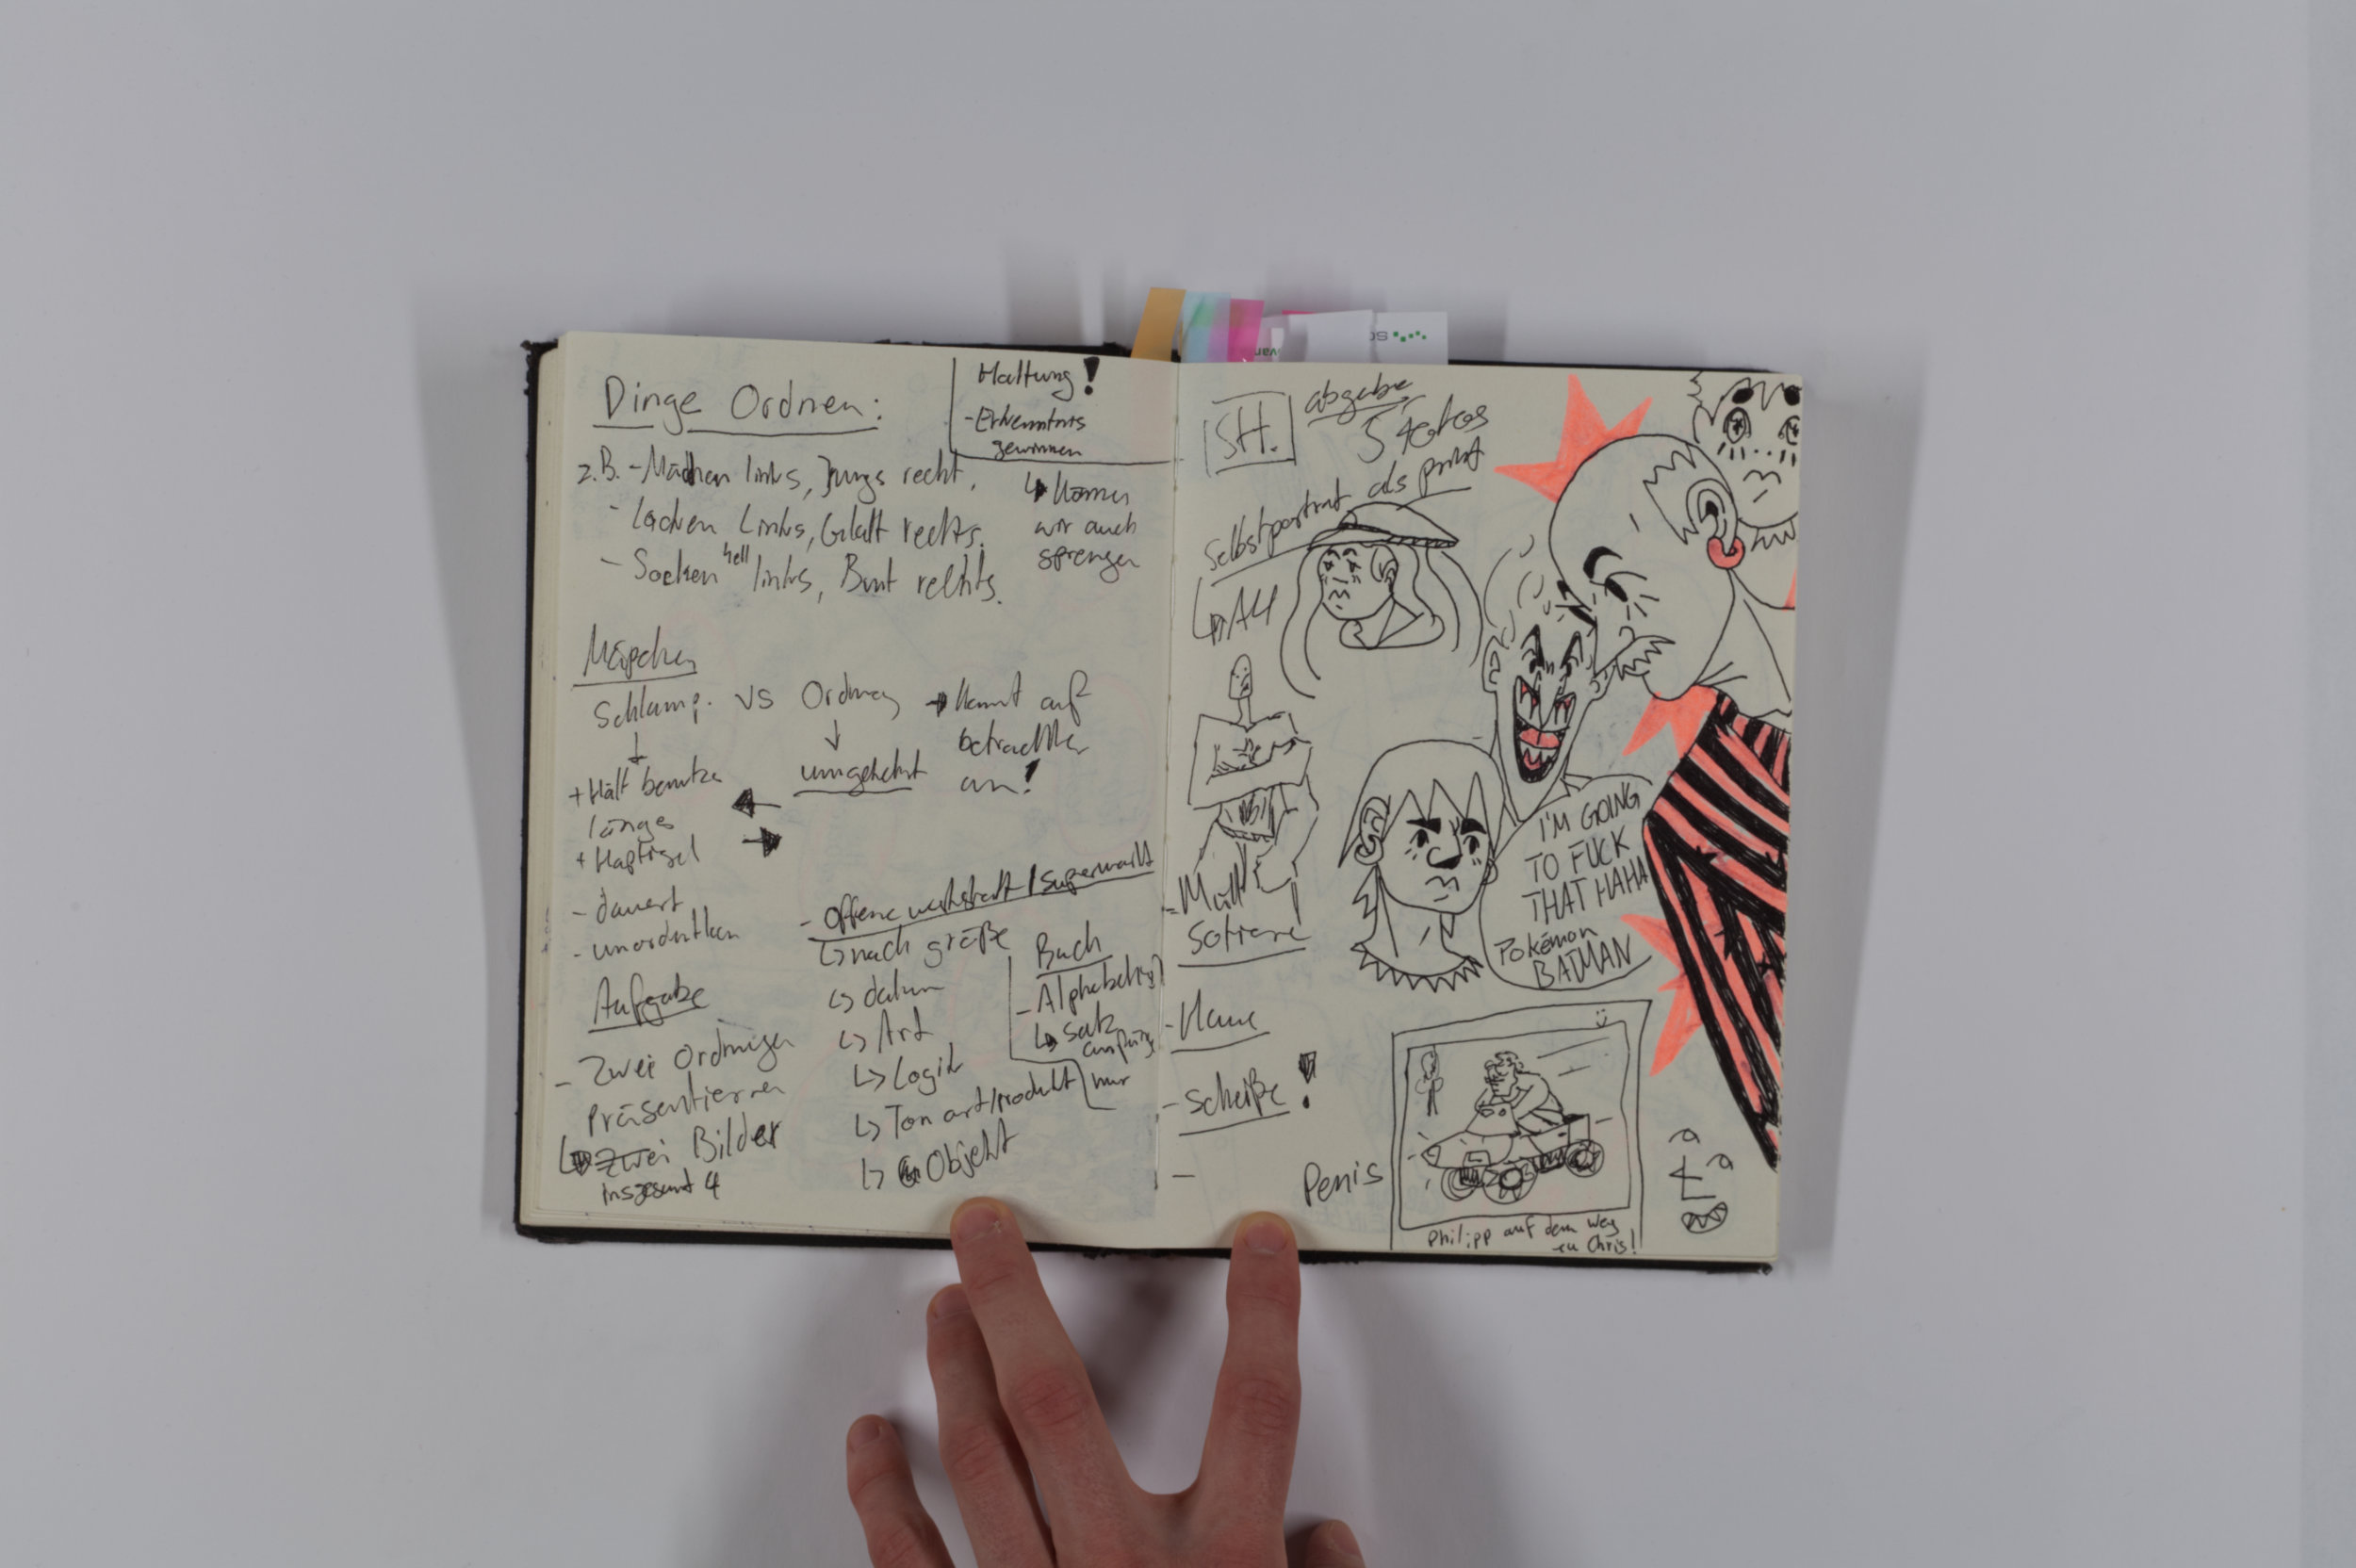 Dinge Ordnen:
Haltung!
-Erkenntnis
gewinnen
↳ können
wir auch
sprengen
z.B. -Mädchen links, Jungs recht.
- Locken Links, Glatt rechts.
- Socken hell links, Bunt rechts.
Mäpchen
Schlamp. vs Ordnung → kommt auf
betrachter
an!
umgekehrt
+ Hält benutze
länger
+
- dauert
-
Aufgabe
- Zwei Ordnungen
Präsentieren
↳ Zwei Bilder
insgesamt 4
- Offene werkstadt /
↳ nach größe
↳ datum
↳ Art
↳ Logik
↳ Ton art/produkt
↳ Objekt
Buch
- Alphabetisch
↳ satz
anfänge
nur
SH.
abgabe
5 fotos
Selbstportrait als print
↳ in A4
- Müll
Sotieren
-
- scheiße!
-
Penis
I'M GOING
TO FUCK
THAT HAHA
Pokémon
BATMAN
Philipp auf dem Weg
zu Chris!